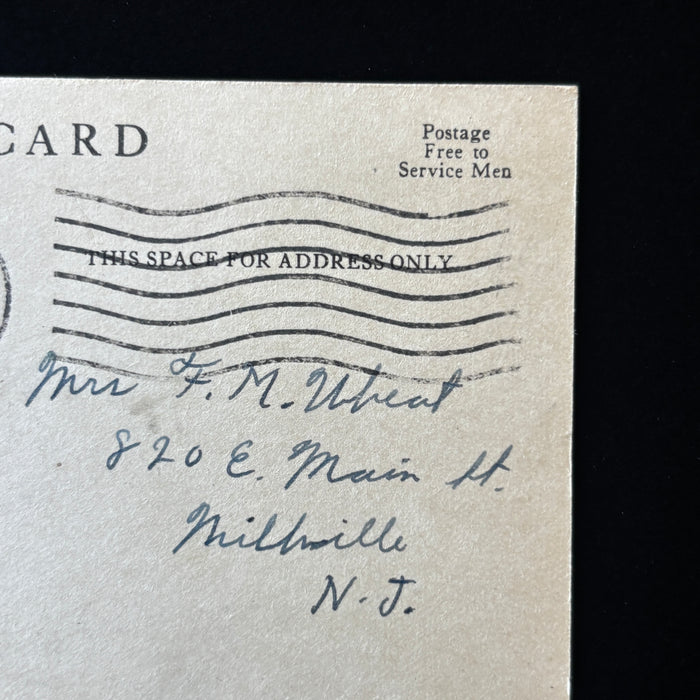 CARD
Postage
Free to
Service Men
THIS SPACE FOR ADDRESS ONLY
Mrs F. M. Wheat
820 E. Main St.
Millville
N.J.